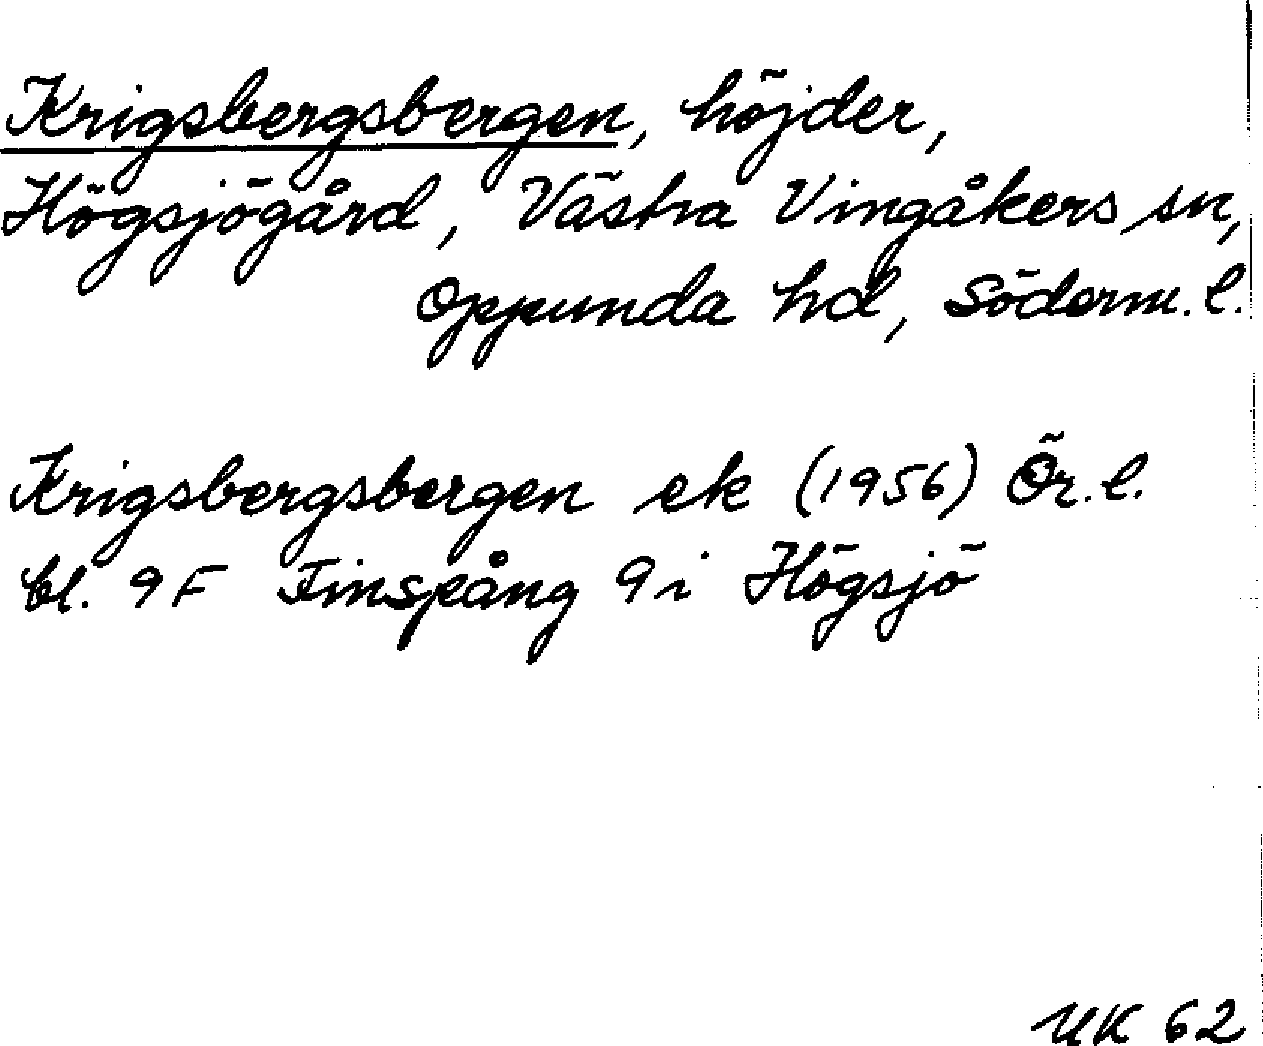 Krigsbergsbergen, höjder,
Högsjögård, Västra Vingåkers sn,
Oppunda hd, Söderm. l.
Krigsbergsbergen ek (1956) Ör. l.
bl. 9F Finspång 9i Högsjö
UK 62